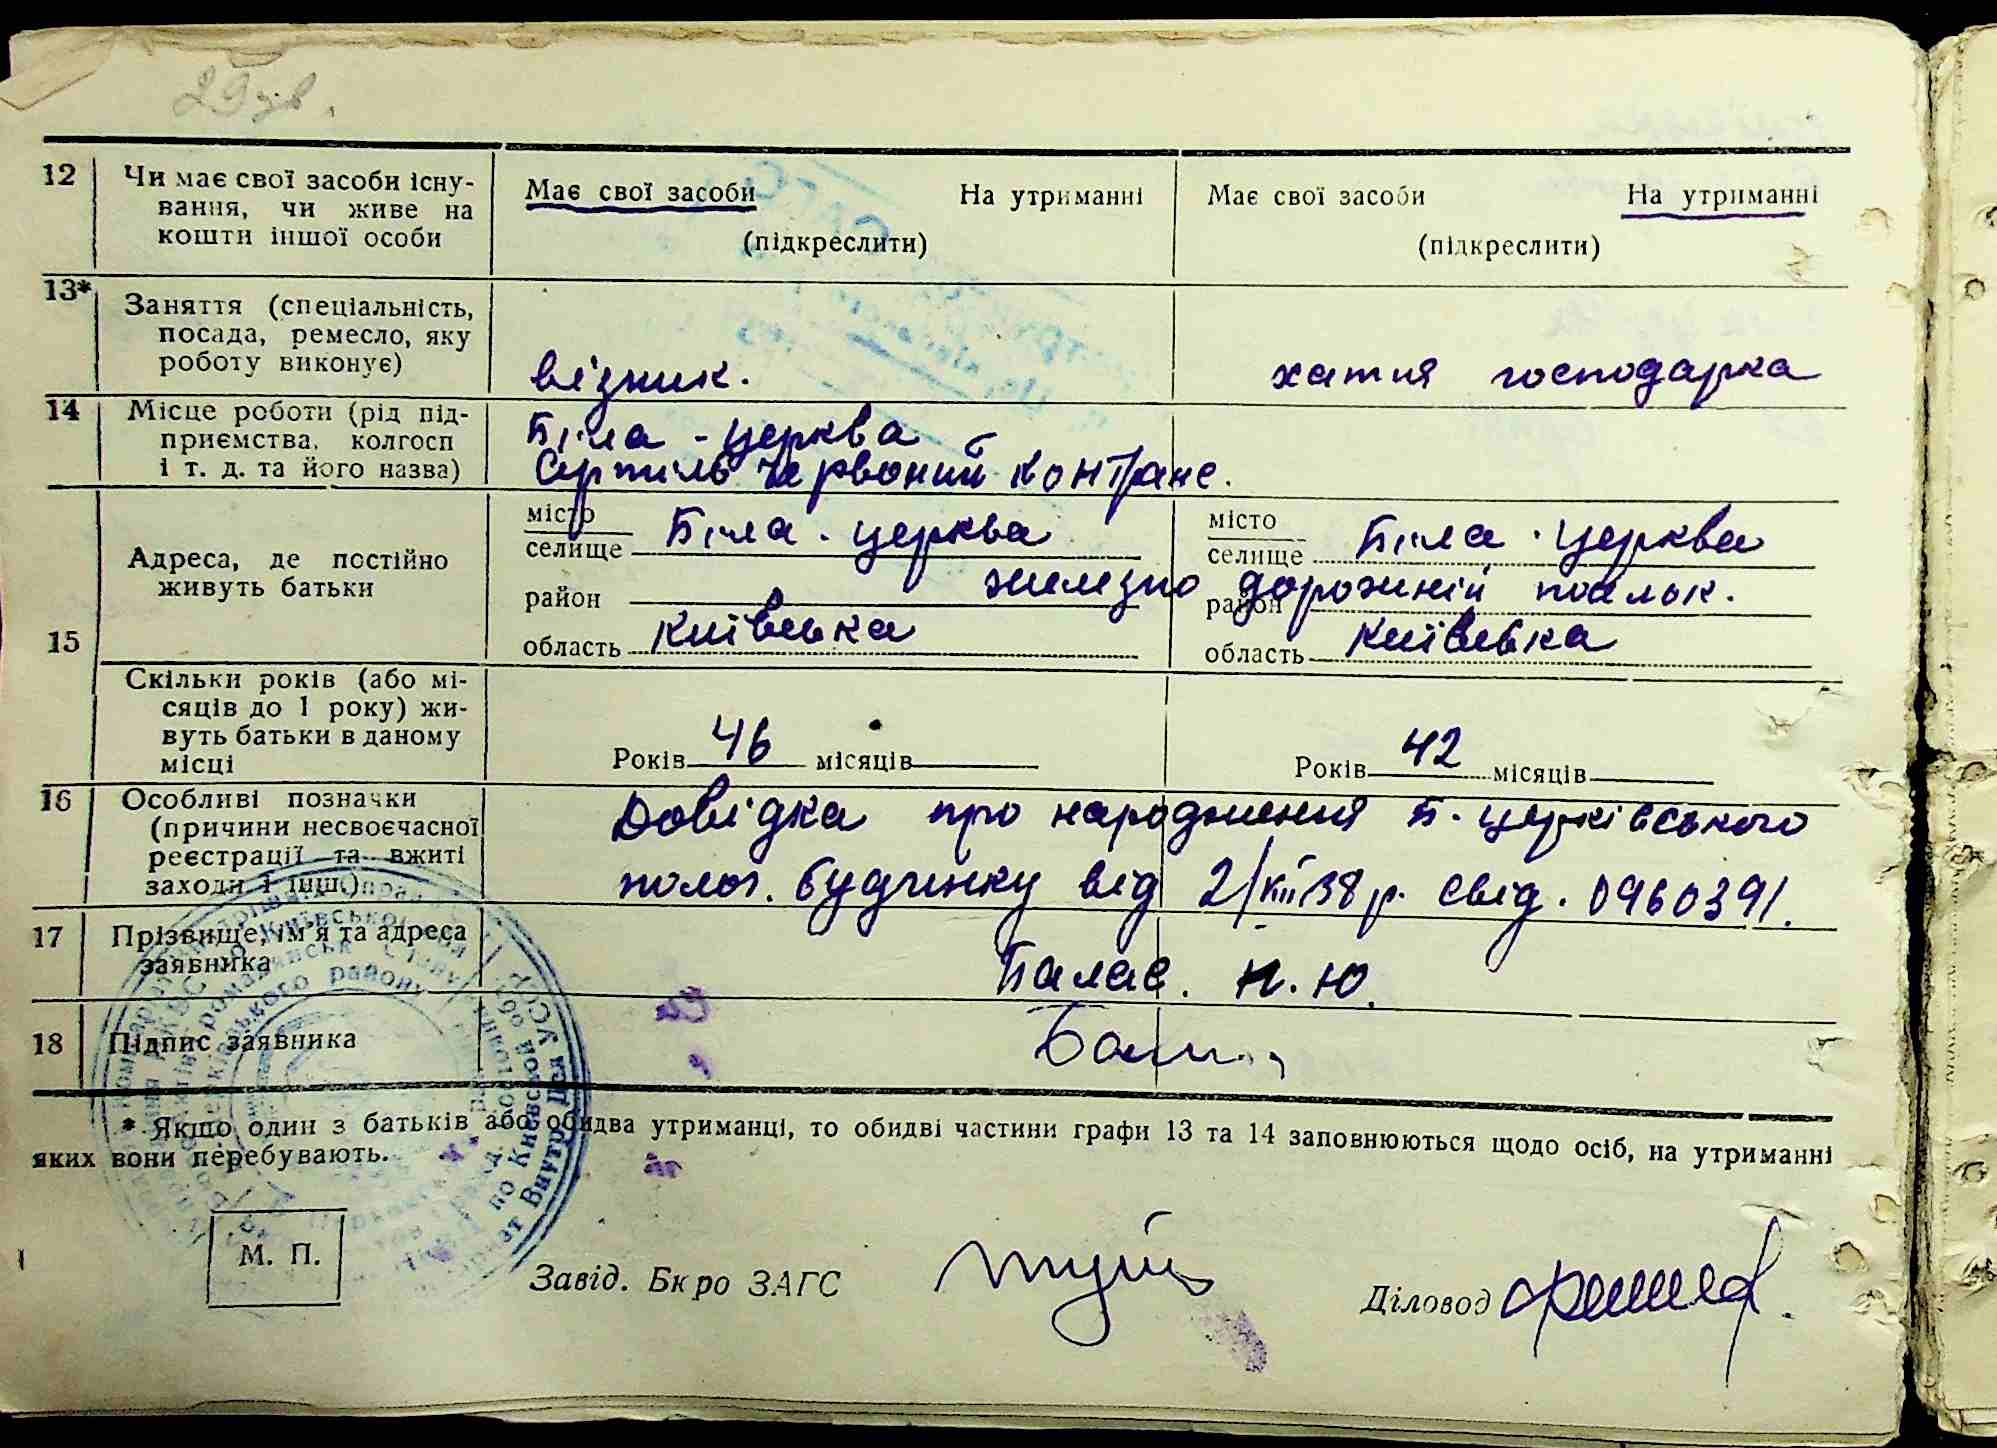 29 зв.
12 Чи має свої засоби існу-
вання, чи живе на
кошти іншої особи
Має свої засоби На утриманні
(підкреслити)
Має свої засоби На утриманні
(підкреслити)
13* Заняття (спеціальність,
посада, ремесло, яку
роботу виконує)
візник.
хатня господарка
14 Місце роботи (рід під-
приємства, колгосп
і т. д. та його назва)
Біла - церква
Червоний контранс.
15 Адреса, де постійно
живуть батьки
місто
селище Біла. церква
район
область київська
місто
селище Біла. церква
железно дорожній посьолок.
район
область київська
Скільки років (або мі-
сяців до 1 року) жи-
вуть батьки в даному
місці
Років 46 місяців
Років 42 місяців
16 Особливі позначки
(причини несвоєчасної
реєстрації та вжиті
заходи і інш.)
Довідка про народження Б. церківського
полог. будинку від 2/XII 38 р. свід. 0960391.
17 Прізвище, ім'я та адреса
заявника
Балас. Н. Ю.
18 Підпис заявника
* Якщо один з батьків або обидва утриманці, то обидві частини графи 13 та 14 заповнюються щодо осіб, на утриманні
яких вони перебувають.
М. П.
Завід. Бюро ЗАГС
Діловод